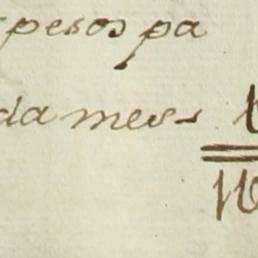 pesos pa
da mes